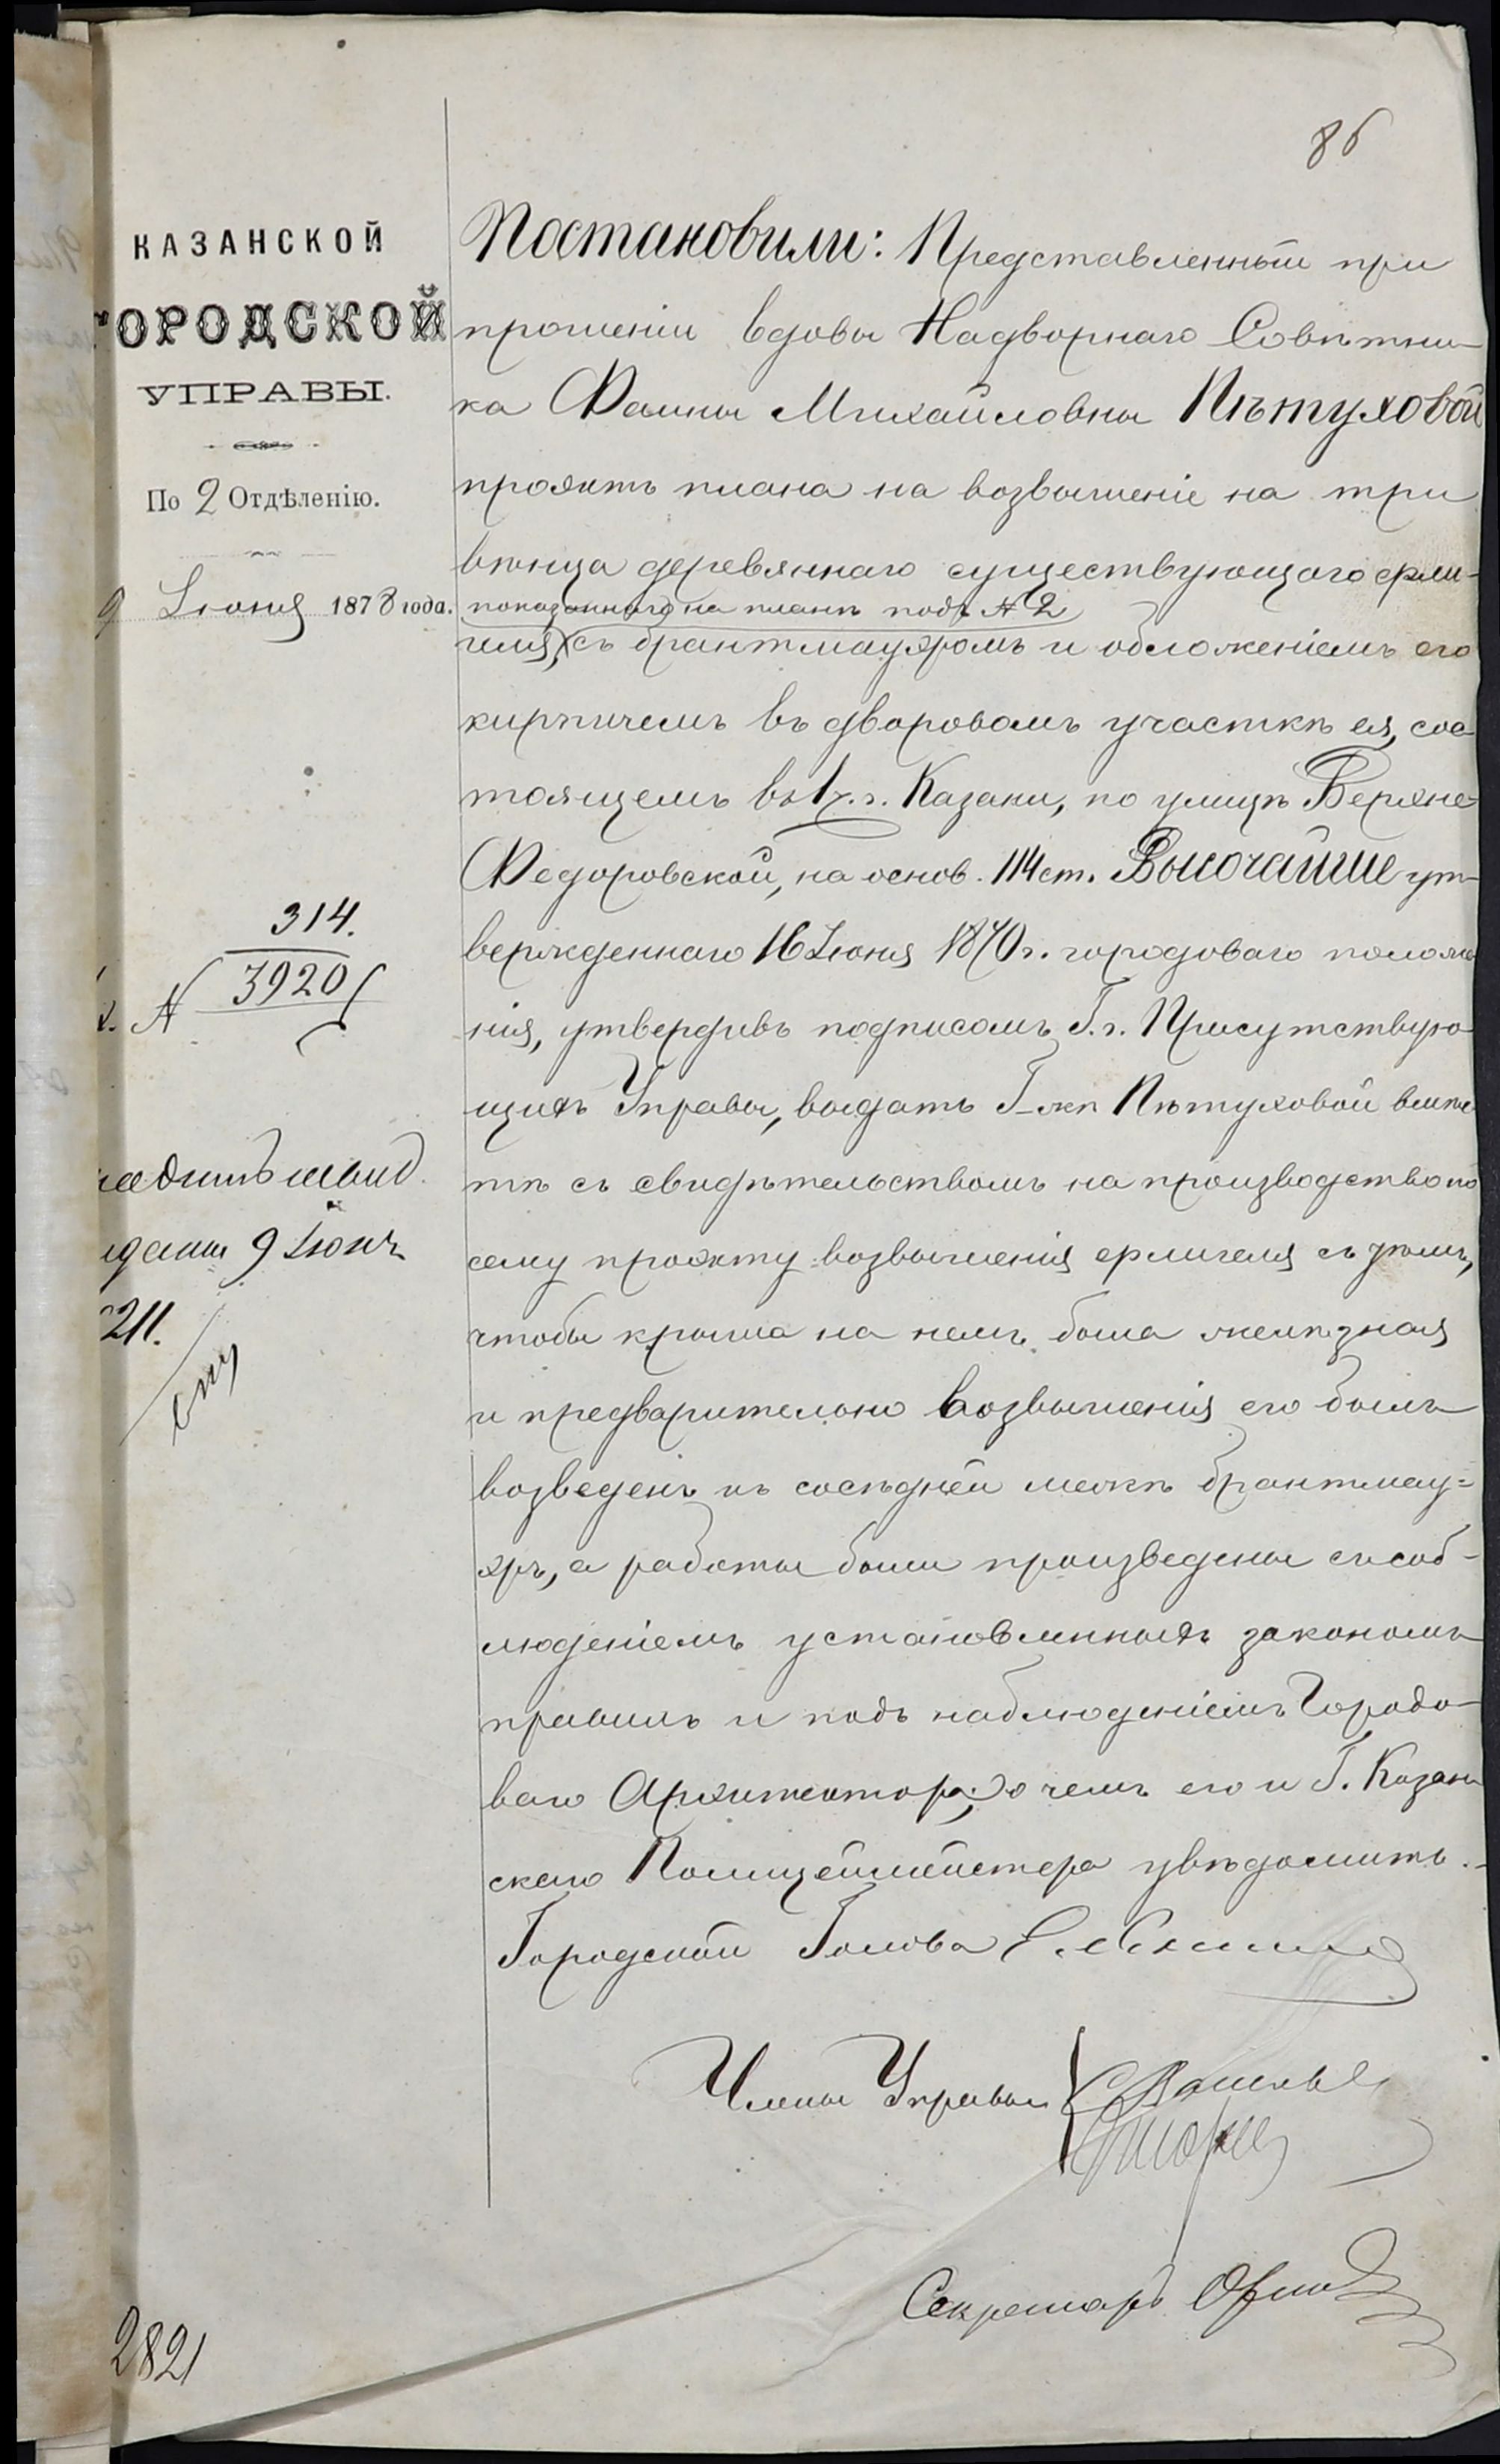 86
КАЗАНСКОЙ
ГОРОДСКОЙ
УПРАВЫ.
По 2 Отдѣленію.
9 Іюня 1878 года.
314.
№ 3920
9 Іюня
211.
2821
Постановили: Представленный при
прошеніи вдовы Надворнаго Совѣтни-
ка Фаины Михайловны Пѣтуховой
проэктъ плана на возвышеніе на три
вѣнца деревяннаго существующаго фли-
показаннаго на планѣ подъ № 2
геля, съ брантмауэромъ и обложеніемъ его
кирпичемъ въ дворовомъ участкѣ ея, сос-
тоящемъ въ 1 ч. г. Казани, по улицѣ Верхне-
Федоровской, на основ. 114 ст. Высочайше ут-
вержденнаго 16 Іюня 1870 г. городоваго положе
нія, утвердивъ подписомъ Г.г. Присутствую-
щихъ Управы, выдать Г-жѣ Пѣтуховой вмѣс
тѣ съ свидѣтельствомъ на производство по
сему проэкту возвышенія флигеля съ тѣмъ,
чтобы крыша на немъ была желѣзная
и предварительно возвышенія его былъ
возведенъ къ сосѣдней межѣ брантмау=
эръ, а работы были произведены съ соб-
людѣніемъ установленныхъ закономъ
правилъ и подъ наблюденіемъ Городо-
ваго Архитектора, о чемъ его и Г. Казан
скаго Полицеймейстера увѣдомить.
Городской Голова
Члены Управы
Секретарь